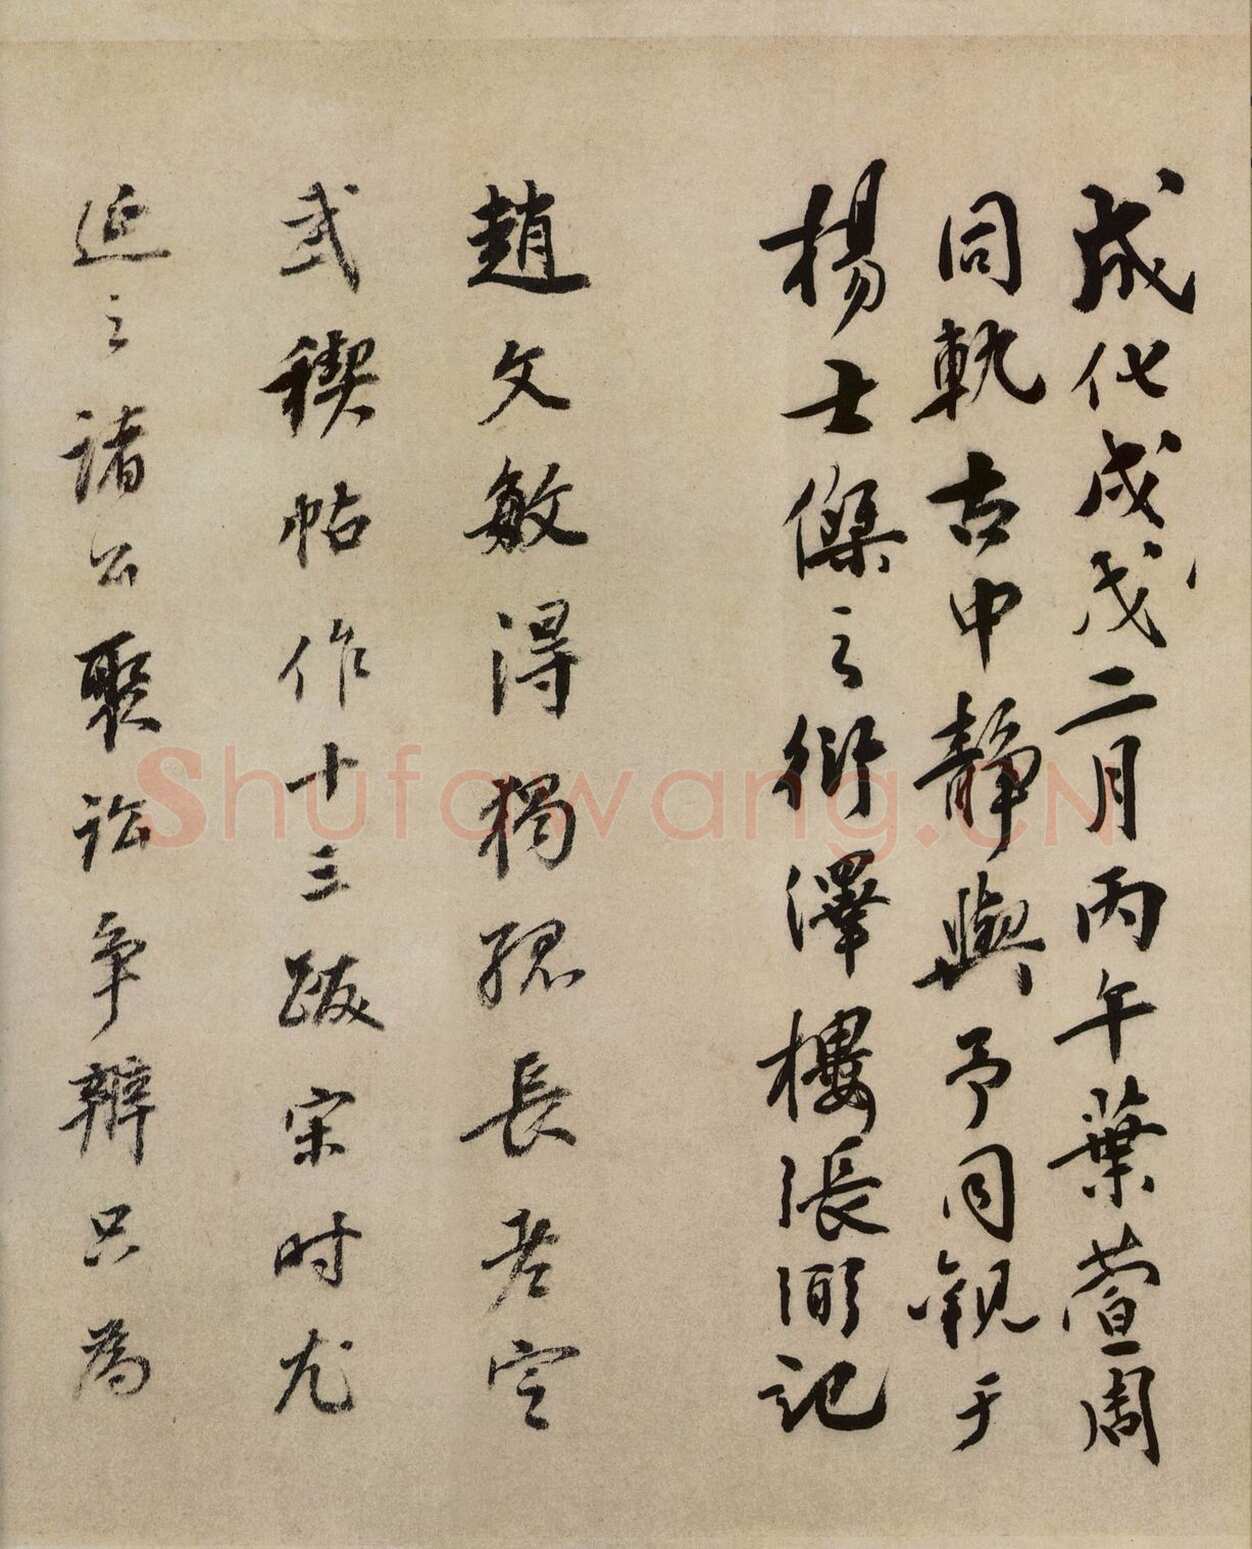 成化戊戌二月丙午葉萱周
同軌古中靜與予同觀于
楊士傑之衍澤樓張弼記
趙文敏得獨孤長老定
武禊帖作十三跋宋时尤
延之諸公聚訟爭辨只為
Shufawang.CN